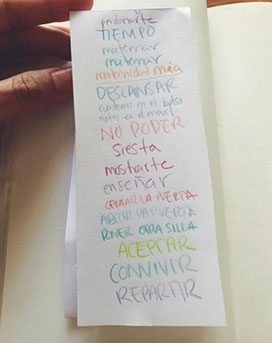 perdonarte
TIEMPO
maternar
maternar
maternidad mía
DESCANSAR
cuaderno en el bolso
notas en el móvil
NO PODER
siesta
mostrarte
enseñar
CERRAR LA PUERTA
ABRIR LA PUERTA
PONER OTRA SILLA
ACEPTAR
CONVIVIR
REPARTIR